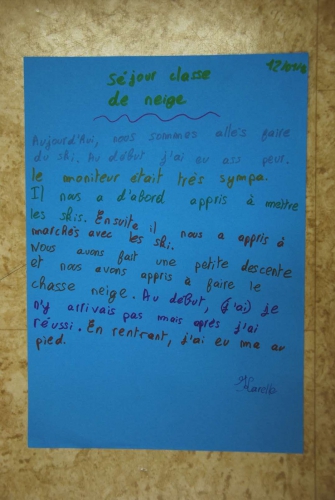 12/01/16
Séjour classe
de neige
Aujourd'hui, nous sommes allés faire
du ski. Au début j'ai eu ass peur.
le moniteur était très sympa.
Il nous a d'abord appris à mettre
les skis. Ensuite il nous a appris à
marchés avec les ski.
Nous avons fait une petite descente
et nous avons appris à faire le
chasse neige. Au début, (j'ai) je
n'y arrivais pas mais après j'ai
réussi. En rentrant, j'ai eu ma au
pied.